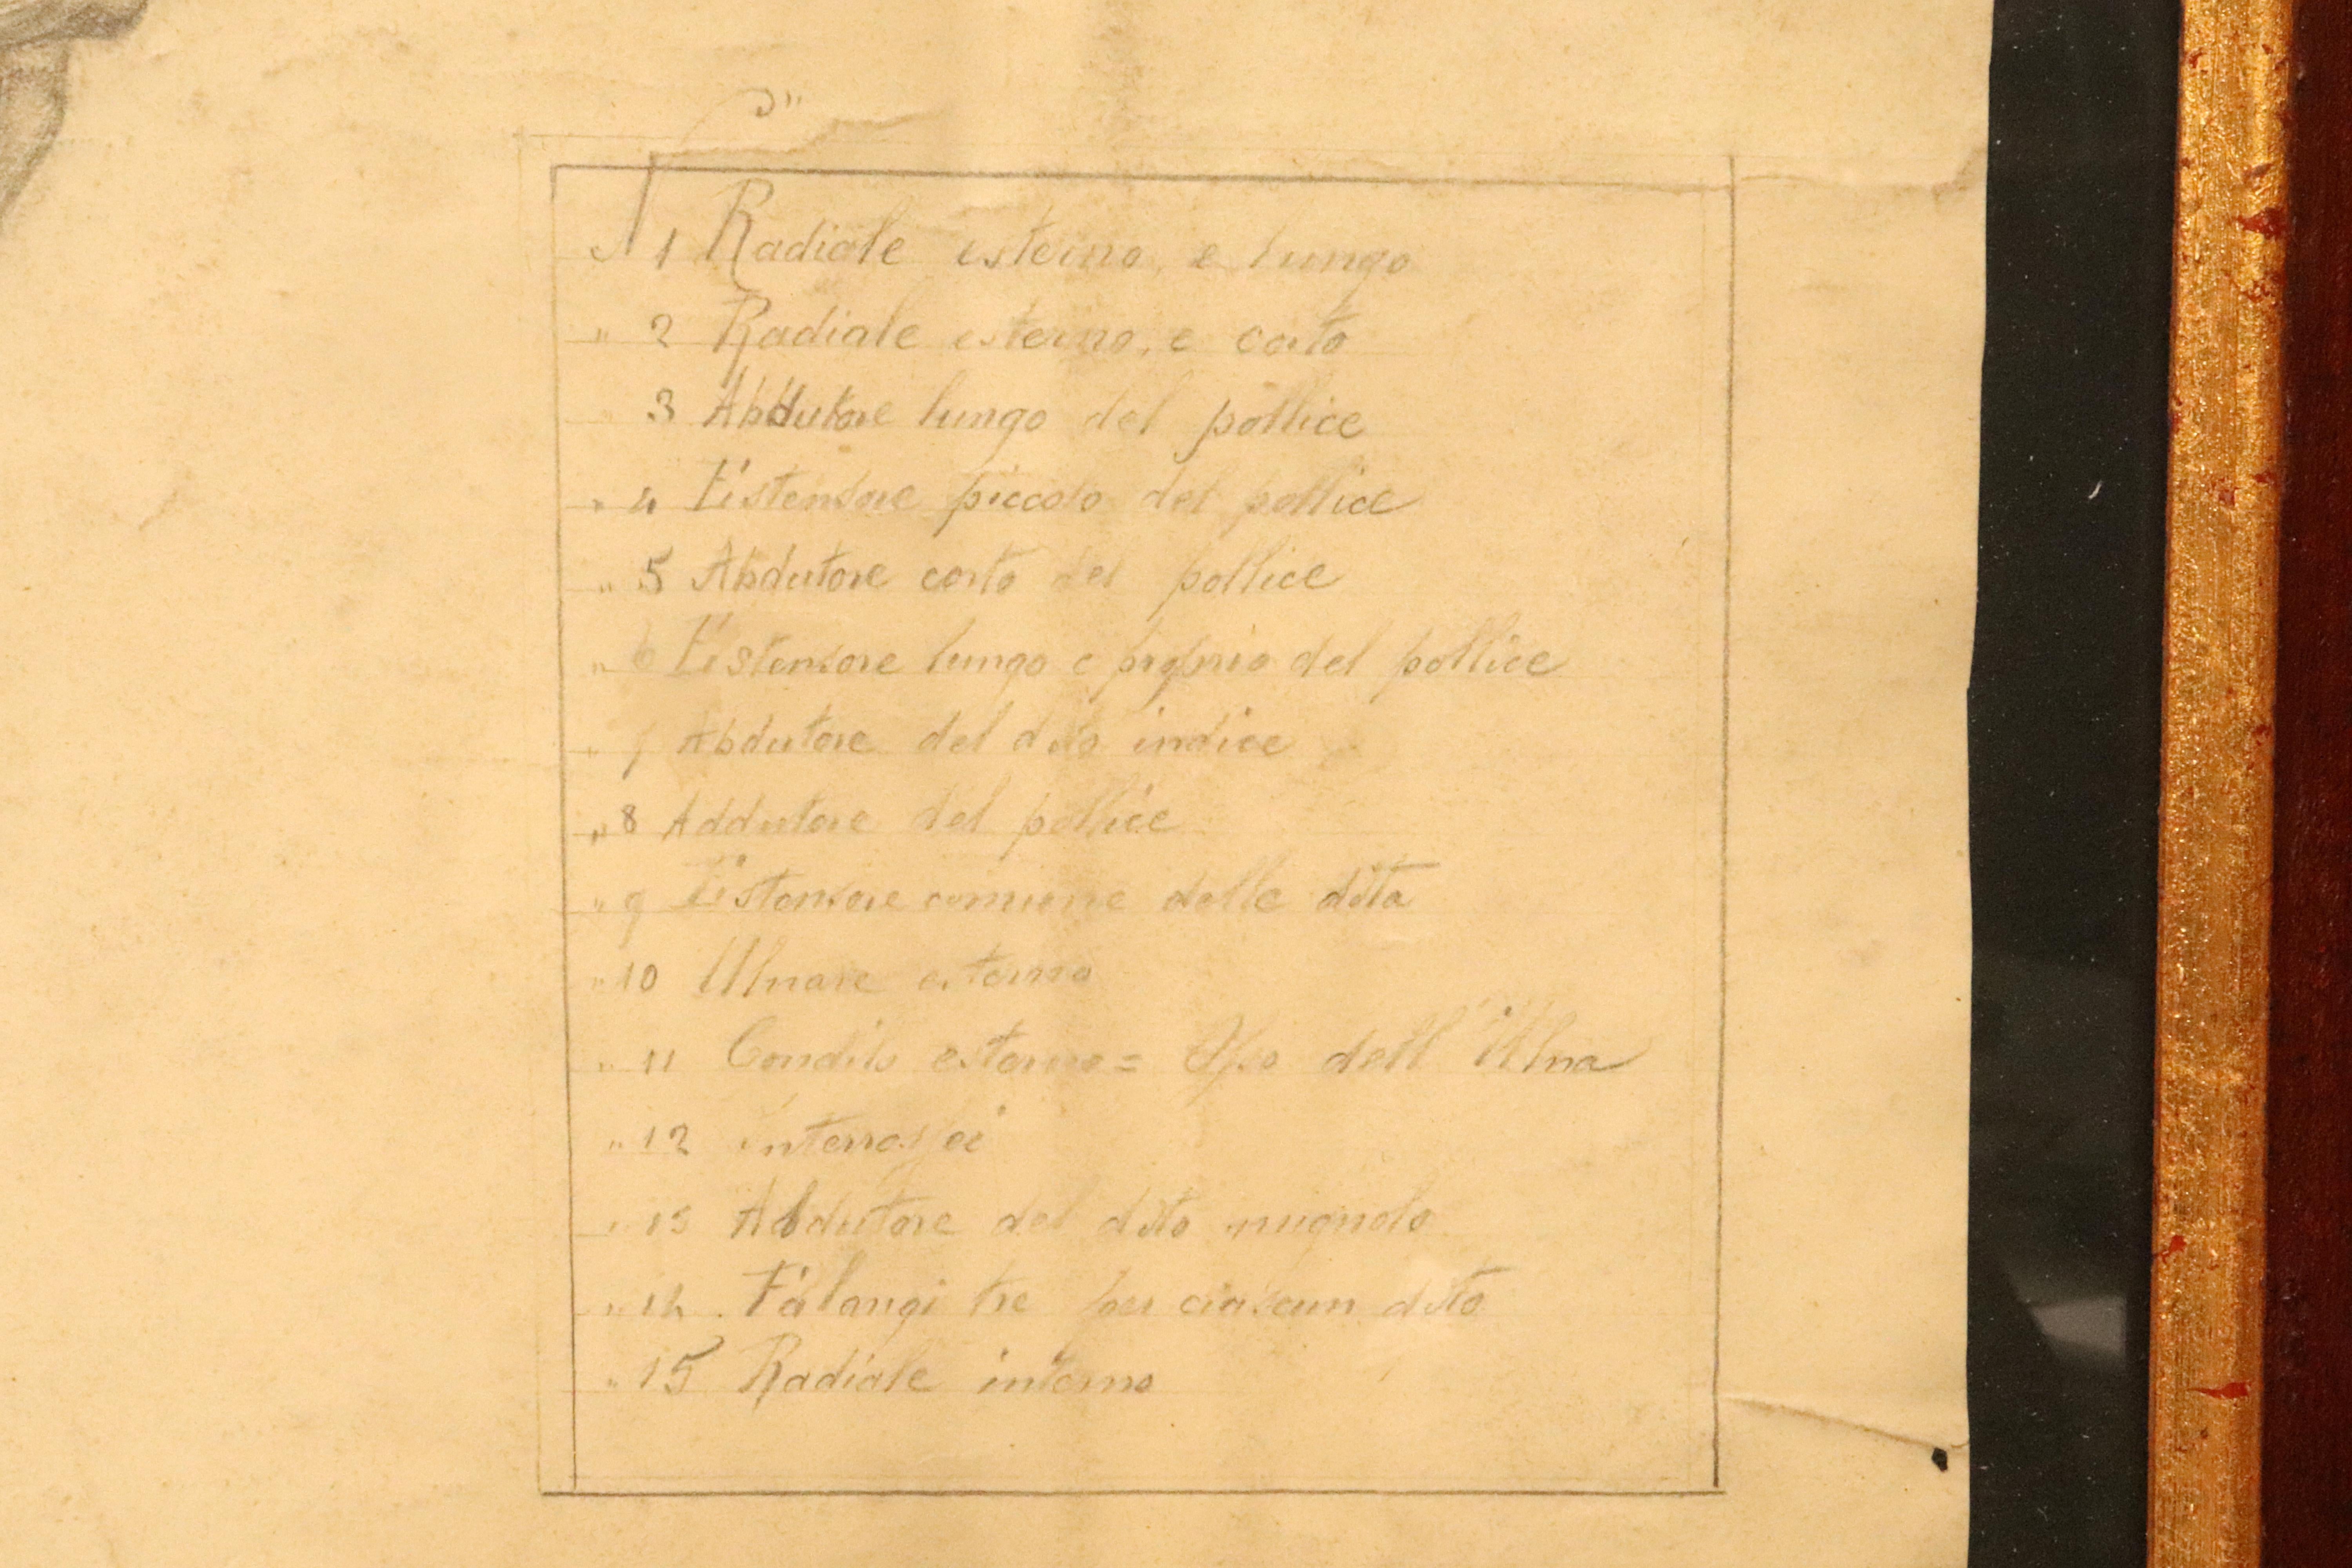 N 1 Radiale esterno, e lungo
" 2 Radiale esterno, e corto
" 3 Abdutore lungo del pollice
" 4 Estensore piccolo del pollice
" 5 Abdutore corto del pollice
" 6 Estensore lungo e proprio del pollice
" 7 Abdutore del dito indice
" 8 Addutore del pollice
" 9 Estensore comune delle dita
" 10 Ulnare esterno
" 11 Condilo esterno = Osso dell'Ulna
" 12 Interossei
" 13 Abdutore del dito mignolo
" 14 . Falangi tre per ciascun dito
" 15 Radiale interno